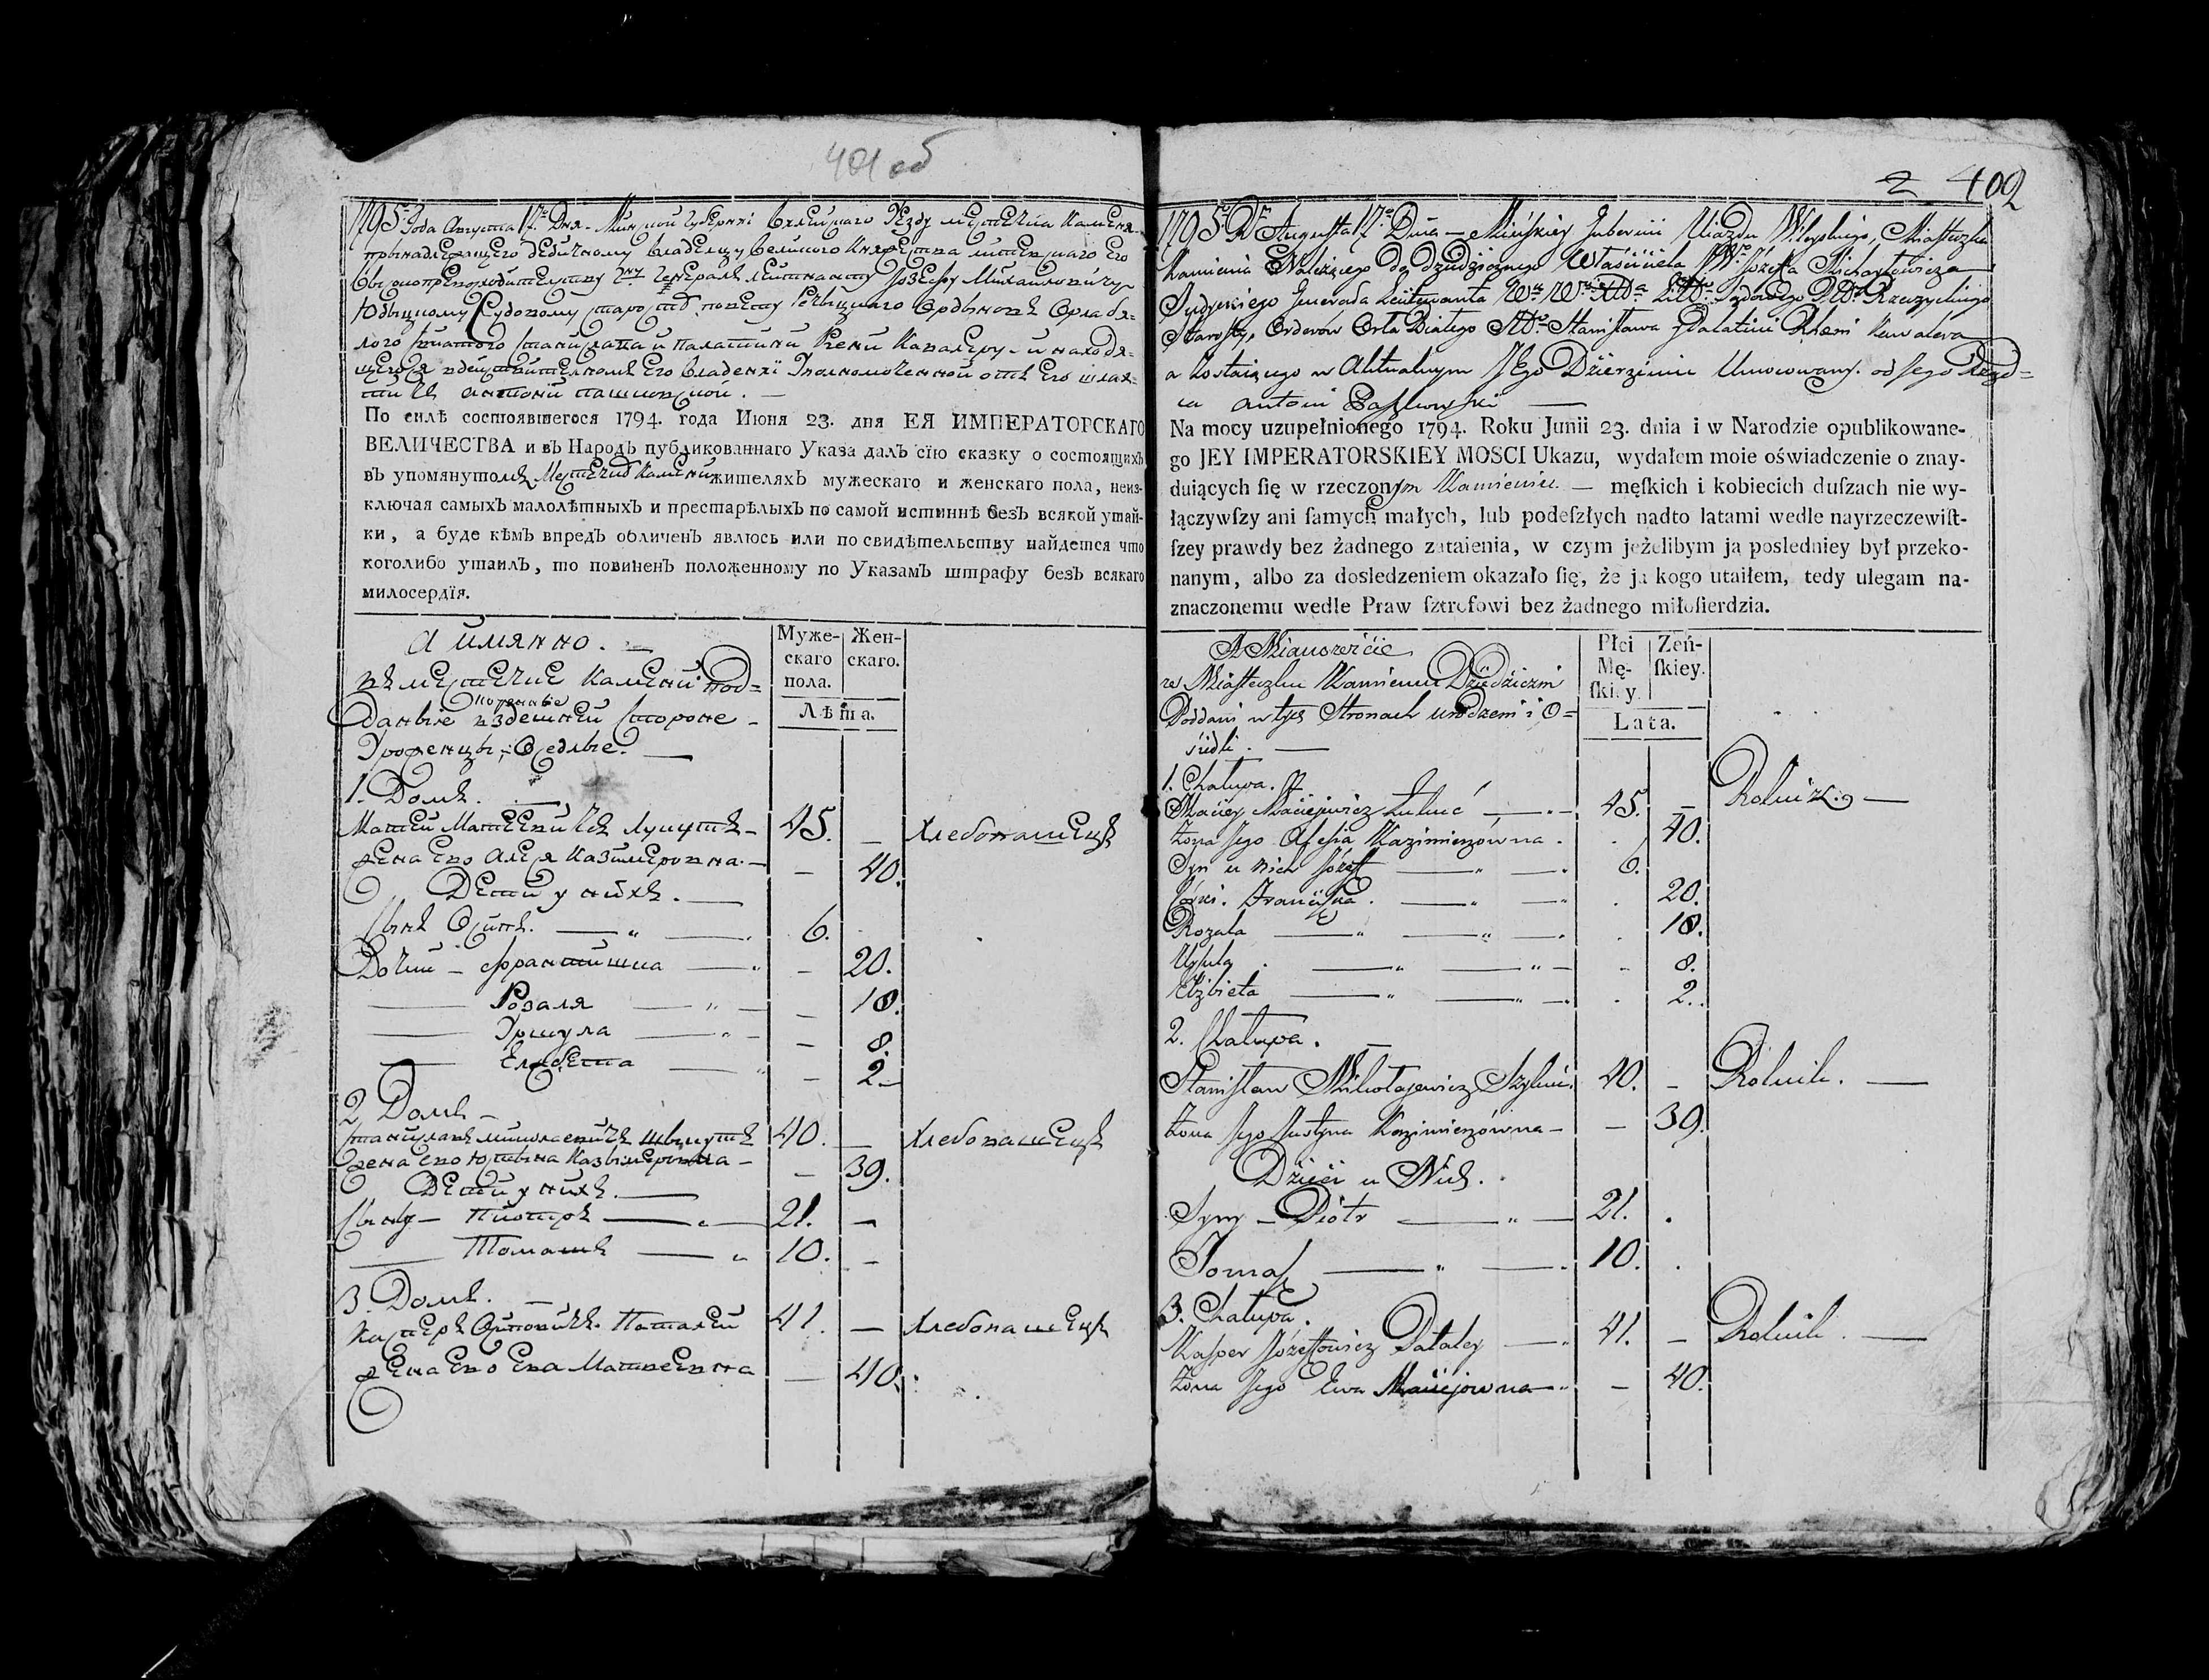 401 об
1795го Года Августа 17го Дня. Минской Губернии Вилейского Уезду местечка Каменя
принадлежащего дедичному владелцу великого княжества литовского его
Генерал лейтнанту Иозефу Михайловичу
Судовому старосте повету Речицкого Ордынов Орла бе=
лого святого станислава и палатини Рени Кавалеру и находя=
щегося в действителном его владении Уполномоченной от его шлях=
тич антоний пашковской.
По силѣ состоявшегося 1794. года Июня 23. дня ЕЯ ИМПЕРАТОРСКАГО
ВЕЛИЧЕСТВА и въ Народъ публикованнаго Указа далъ сїю сказку о состоящихъ
въ упомянутомъ Местечке Камени жителяхъ мужескаго и женскаго пола, неиз-
ключая самыхъ малолѣтныхъ и престарѣлыхъ по самой истиннѣ безъ всякой утай-
ки, а буде кѣмъ впредъ обличенъ явлюсь или по свидѣтельству найдется что
коголибо утаилъ, то повиненъ положенному по Указамъ штрафу безъ всякаго
милосердїя.
а имянно.
Муже-
скаго
пола.
Жен-
скаго.
Лѣта.
в местечке Камени Под=
коренные
даныие в здешней стороне
Уроженцы, Оседлые.
1. Домъ.
Матей Матеевичъ Лукутъ 45. — Хлебопашецъ
жена ево Алеся Казимеровна — 40.
Дети у нихъ.
Сынъ Осипъ 6.
Дочки — Францишка — 20.
Розаля — 18.
Уршула — 8.
Елжбета — 2.
2 Домъ
Станиславъ миколаевичъ 40. — Хлебопашецъ
жена ево Юстына Казымеровна — 39.
Дети у нихъ.
Сыны — Пиотръ 21. —
Томашъ 10. —
3. Домъ.
Касперъ Осиповичъ Паталей 41. — Хлебопашецъ
жена ево Ева Матвеевна — 40.
2 402
1795go Rku Augusta 17go Dnia — Mińskiey Gubernii Uiazdu Wileyskiego, Miasteczka
Kamienia Należącego do dziedzicznego Właściciela JW. Józefa Michayłowicza
Judyckiego Generała Leutnanta Sądowego Rzeczyckiego
Starosty, Orderów Orła Białego Sto Stanisława y Palatini Rheni Kawalera
a zostaiącego w Aktualnym Jego Dzierżeniu Umocowany od Jego Rząd=
ca Antoni Paszkowski
Na mocy uzupełnionego 1794. Roku Junii 23. dnia i w Narodzie opublikowane-
go JEY IMPERATORSKIEY MOSCI Ukazu, wydałem moie oświadczenie o znay-
duiących ſię w rzeczonym Kamieniu — męſkich i kobiecich duſzach nie wy-
łączywſzy ani ſamych małych, lub podeſzłych nadto latami wedle nayrzeczewiſt-
ſzey prawdy bez żadnego zataienia, w czym jeżelibym ja posledniey był przeko-
nanym, albo za dosledzeniem okazało ſię, że ja kogo utaiłem, tedy ulegam na-
znaczonemu wedle Praw ſztrofowi bez żadnego miłoſierdzia.
A Mianowicie
Płci
Mę-
ſkiey.
Zeń-
ſkiey.
Lata.
w Miasteczku Kamieniu Dziedziczni
Poddani w tych Stronach urodzeni i O=
siedli.
1. Chałupa.
Maciey Maciejewicz Łukuć 45. — Rolnik.
Żona Jego Alesia Kazimierzówna 40.
Syn u Nich Józef 6.
Córki. Franciszka 20.
Rozala 18.
Urszula 8.
Elżbieta 2.
2. Chałupa.
Stanisław Mikołajewicz 40. — Rolnik.
Żona Jego Justyna Kazimierzówna — 39.
Dzieci u Nich.
Syny — Piótr 21.
Tomasz 10.
3. Chałupa.
Kasper Józefowicz Pataley 41. — Rolnik.
Żona Jego Ewa Maciejowna — 40.